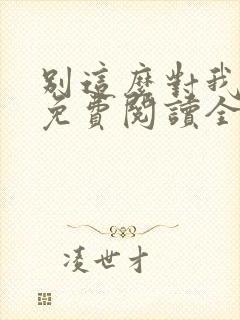 別這麼對我
免費閱讀全
凌世才